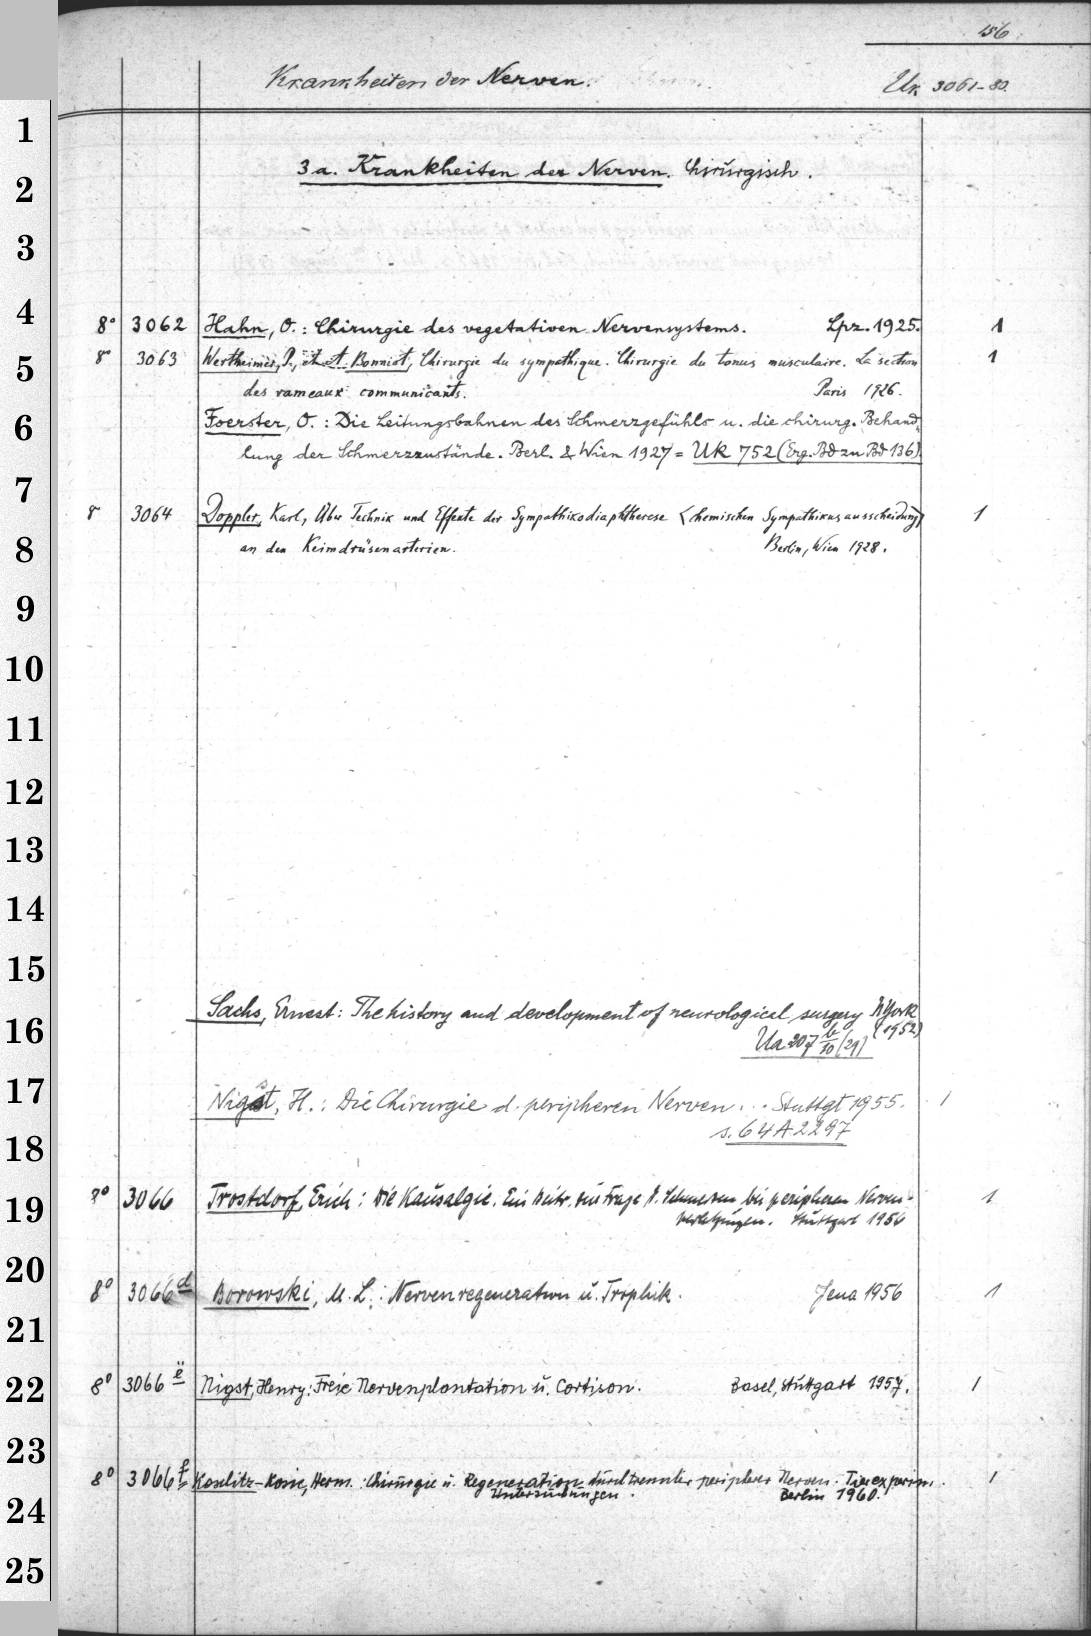 156
Krankheiten der Nerven. Uk 3061-80.
3a. Krankheiten der Nerven. Chirurgisch.
8° 3062 Hahn, O.: Chirurgie des vegetativen Nervensystems. Lpz. 1925. 1
8° 3063 Wertheimer, P., et A. Bonniot, Chirurgie du sympathique. Chirurgie du tonus musculaire. La section 1
des rameaux communicants. Paris 1926.
Foerster, O.: Die Leitungsbahnen des Schmerzgefühls u. die chirurg. Behand
lung der Schmerzzustände. Berl. & Wien 1927 = Uk 752 (Erg. Bd zu Bd 136).
8° 3064 Doppler, Karl, Über Technik und Effekte der Sympathikodiaphtherese <chemischen Sympathikusausscheidung> 1
an den Keimdrüsenarterien. Berlin, Wien 1928.
Sachs, Ernest: The history and development of neurological surgery N York
(1952)
Ua 207 b/10 (29)
Nigst, H.: Die Chirurgie d. peripheren Nerven... Stuttgt 1955. 1
s. 64 A 2297
8° 3066 Trostdorf, Erich: Die Kausalgie. Ein Beitr. zur Frage d. Schmerzen bei peripheren Nerven- 1
verletzungen. Stuttgart 1956
8° 3066 d Borowski, M. L.: Nervenregeneration u. Trophik. Jena 1956 1
8° 3066 e Nigst, Henry: Freie Nervenplantation u. Cortison. Basel, Stuttgart 1957. 1
8° 3066 f Koslitz-Konic, Herm.: Chirurgie u. Regeneration durchtrennter peripherer Nerven. Tierexperim. 1
Untersuchungen. Berlin 1960.
1
2
3
4
5
6
7
8
9
10
11
12
13
14
15
16
17
18
19
20
21
22
23
24
25